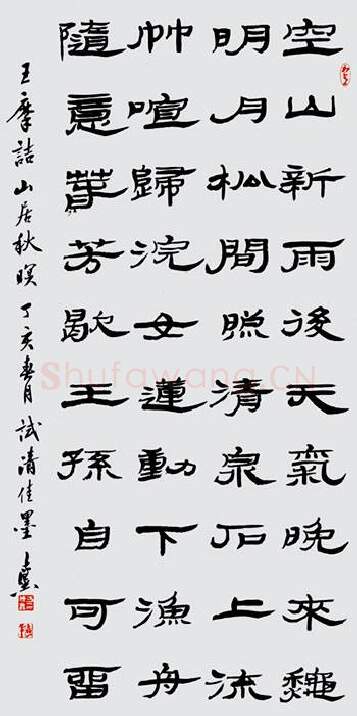 空山新雨後天氣晚來龝
明月松間照清泉石上流
竹喧歸浣女蓮動下漁舟
隨意萅芳歇王孫自可留
王摩詰山居秋暝丁亥春月試清佳墨
Shufawang.CN